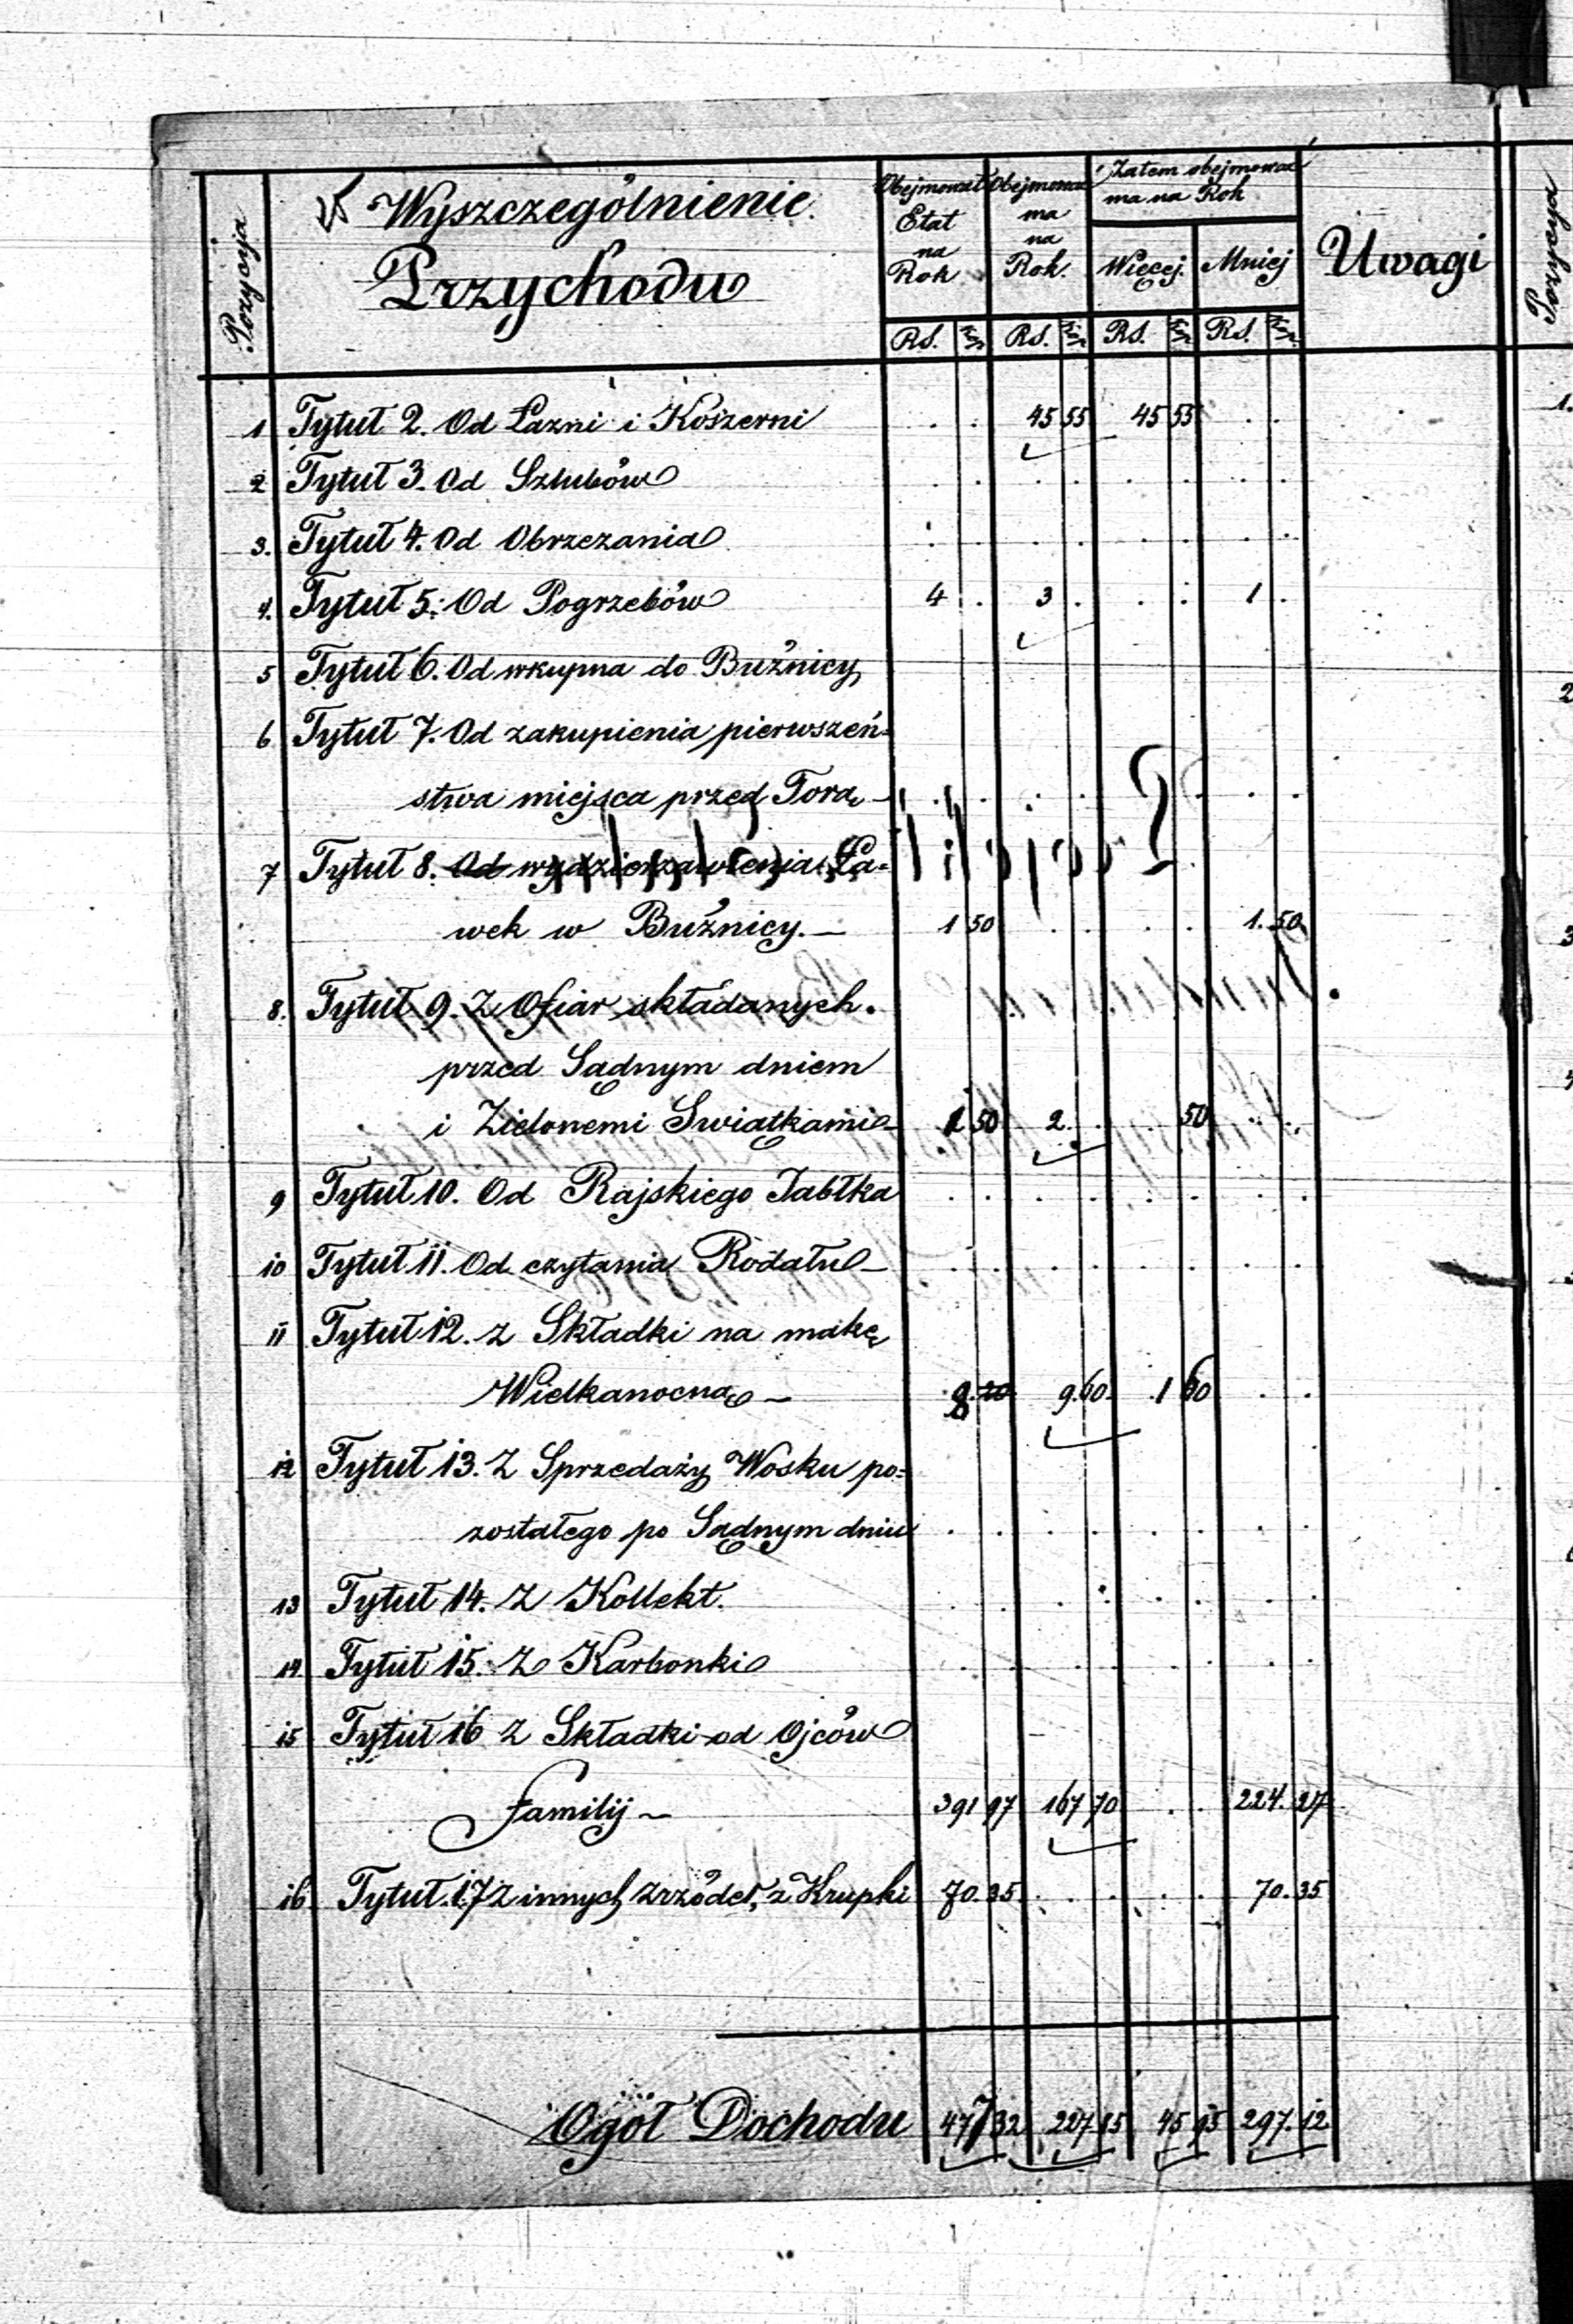 Pozycja
Wyszczególnienie
Przychodu
Obejmował Etat na Rok
Obejmować ma na Rok.
Zatem obejmować ma na Rok
Więcej. Mniej
Uwagi
Pozycya
RS. RS. RS. RS.
1 Tytuł 2. Od Łazni i Koszerni . . 45 55 45 55 . .
2 Tytuł 3. Od Szlubów . . . . . . . .
3. Tytuł 4. Od Obrzezania . . . . . . . .
4. Tytuł 5. Od Pogrzebów 4 . 3 . . . 1 .
5 Tytuł 6. Od wkupna do Buźnicy
6 Tytuł 7. Od zakupienia pierwszeń=
stwa miejsca przed Torą - . . . . . . .
7 Tytuł 8. Od wydzierzawienia Ła=
wek w Buźnicy. - 1 50 . . . . 1. 50
8. Tytuł 9. Z Ofiar składanych
przed Sądnym dniem
i Zielonemi Swiątkami - 1 50 2. . . 50 . .
9 Tytuł 10. Od Rajskiego Jabłka . . . . . . . .
10 Tytuł 11. Od czytania Rodału - . . . . . . . .
11 Tytuł 12. z Składki na mąkę
Wielkanocną - 8 20 9. 60. 1 60 . .
12 Tytuł 13. Z Sprzedaży Wosku po=
zostałego po Sądnym dniu . . . . . . . .
13 Tytuł 14. Z Kollekt. . . . . . . . .
14 Tytuł 15. Z Karbonki . . . . . . . .
15 Tytuł 16 Z Składki od Ojców
Familij - 391 97 167 70 . . 224. 27
16 Tytuł 17 Z innych zrzódeł, z Krupki 70. 35 . . . . 70. 35
Ogół Dochodu 477 32 227 85 45 95 297. 12